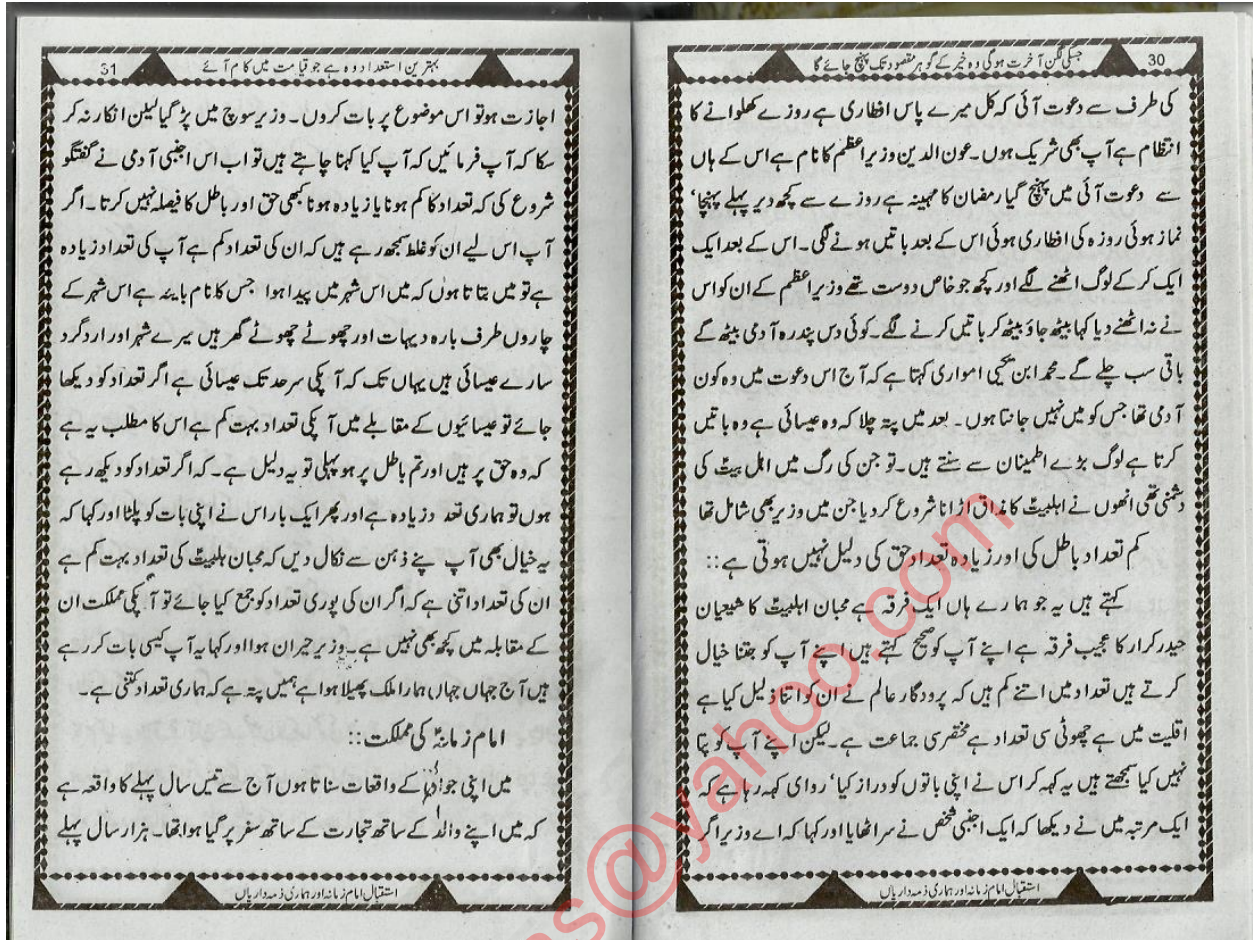 30
جسکی لگن آخرت ہوگی وہ خیر کے گوہر مقصود تک پہنچ جائے گا
کی طرف سے دعوت آئی کہ کل میرے پاس افطاری ہے روزے کھلوانے کا
انتظام ہے آپ بھی شریک ہوں۔عون الدین وزیر اعظم کا نام ہے اس کے ہاں
سے دعوت آئی میں پہنچ گیا رمضان کا مہینہ ہے روزے سے کچھ دیر پہلے پہنچا'
نماز ہوئی روزہ کی افطاری ہوئی اس کے بعد باتیں ہونے لگی۔اس کے بعد ایک
ایک کر کے لوگ اٹھنے لگے اور کچھ جو خاص دوست تھے وزیر اعظم کے ان کو اس
نے نہ اٹھنے دیا کہا بیٹھ جاؤ بیٹھ کر باتیں کرنے لگے۔کوئی دس پندرہ آدمی بیٹھ گے
باقی سب چلے گے۔محمد ابن یحیی امواری کہتا ہے کہ آج اس دعوت میں وہ کون
آدمی تھا جس کو میں نہیں جانتا ہوں۔ بعد میں پتہ چلا کہ وہ عیسائی ہے وہ باتیں
کرتا ہے لوگ بڑے اطمینان سے سنتے ہیں۔تو جن کی رگ میں اہل بیتؑ کی
دشمنی تھی انھوں نے اہلبیتؑ کا مذاق اڑانا شروع کر دیا جن میں وزیر بھی شامل تھا
کم تعداد باطل کی اور زیادہ تعداد حق کی دلیل نہیں ہوتی ہے::
کہتے ہیں یہ جو ہمارے ہاں ایک فرقہ ہے محبان اہلبیتؑ کا شیعیان
حیدر کرار کا عجیب فرقہ ہے اپنے آپ کو صحیح کہتے ہیں اپنے آپ کو جتنا خیال
کرتے ہیں تعداد میں اتنے کم ہیں کہ پرودگار عالم نے ان کو اتنا ذلیل کیا ہے
اقلیت میں ہے چھوٹی سی تعداد ہے مختصری جماعت ہے۔لیکن اپنے آپ کو پتا
نہیں کیا سمجھتے ہیں یہ کہہ کر اس نے اپنی باتوں کو دراز کیا' روای کہہ رہا ہے کہ
ایک مرتبہ میں نے دیکھا کہ ایک اجنبی شخص نے سر اٹھایا اور کہا کہ اے وزیر اگر
استقبال امام زمانہ اور ہماری ذمہ داریاں
31
بہترین استعداد وہ ہے جو قیامت میں کام آئے
اجازت ہو تو اس موضوع پر بات کروں۔ وزیر سوچ میں پڑ گیا لیلن انکار نہ کر
سکا کہ آپ فرمائیں کہ آپ کیا کہنا چاہتے ہیں تو اب اس اجنبی آدمی نے گفتگو
شروع کی کہ تعداد کا کم ہونا یا زیادہ ہونا کبھی حق اور باطل کا فیصلہ نہیں کرتا۔اگر
آپ اس لیے ان کو غلط سمجھ رہے ہیں کہ ان کی تعداد کم ہے آپ کی تعداد زیادہ
ہے تو میں بتاتا ہوں کہ میں اس شہر میں پیدا ہوا جس کا نام بایند ہے اس شہر کے
چاروں طرف بارہ دیہات اور چھوٹے چھوٹے گھر ہیں میرے شہر اور اردگرد
سارے عیسائی ہیں یہاں تک کہ آپکی سرحد تک عیسائی ہے اگر تعداد کو دیکھا
جائے تو عیسائیوں کے مقابلے میں آپکی تعداد بہت کم ہے اس کا مطلب یہ ہے
کہ وہ حق پر ہیں اور تم باطل پر ہو پہلی تو یہ دلیل ہے۔کہ اگر تعداد کو دیکھ رہے
ہوں تو ہماری تعد دزیادہ ہے اور پھر ایک بار اس نے اپنی بات کو پلٹا اور کہا کہ
یہ خیال بھی آپ پنے ذہن سے نکال دیں کہ محبان ہلبیتؑ کی تعداد بہت کم ہے
ان کی تعداد اتنی ہے کہ اگر ان کی پوری تعداد کو جمع کیا جائے تو آپکی مملکت ان
کے مقابلہ میں کچھ بھی نہیں ہے۔وزیر حیران ہوا اور کہا یہ آپ کیسی بات کر رہے
ہیں آج جہاں جہاں ہمارا ملک پھیلا ہوا ہے ہمیں پتہ ہے کہ ہماری تعداد کتنی ہے۔
امام زمانہؑ کی مملکت::
میں اپنی کے واقعات سناتا ہوں آج سے تیس سال پہلے کا واقعہ ہے
کہ میں اپنے والد کے ساتھ تجارت کے ساتھ سفر پر گیا ہوا تھا۔ ہزار سال پہلے
استقبال امام زمانہ اور ہماری ذمہ داریاں
s@yahoo.com